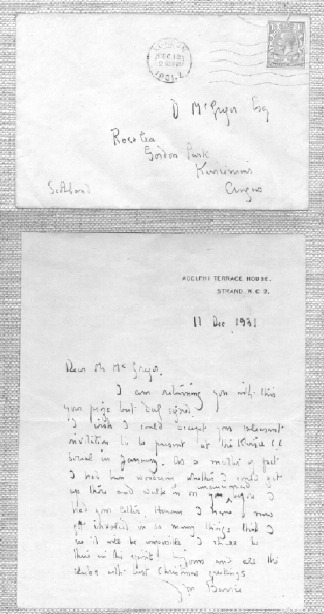 LONDON
1931
D McGregor Esq
Rosetta
Gordon Park
Kirriemuir
Angus
Scotland
ADELPHI TERRACE HOUSE,
STRAND, W.C.2.
11 Dec 1931
Dear Mr McGregor,
I am returning you with this
your page but duly signed.
I wish I could accept your pleasant
invitation to be present at the
in January. As a matter of fact
I had been wondering whether I could get
up there and walk in on you
had your letter. However I have now
got involved in so many things that I
it will be impossible. I shall be
there in the spirit. Yours and all the
with best Christmas greetings
J M Barrie